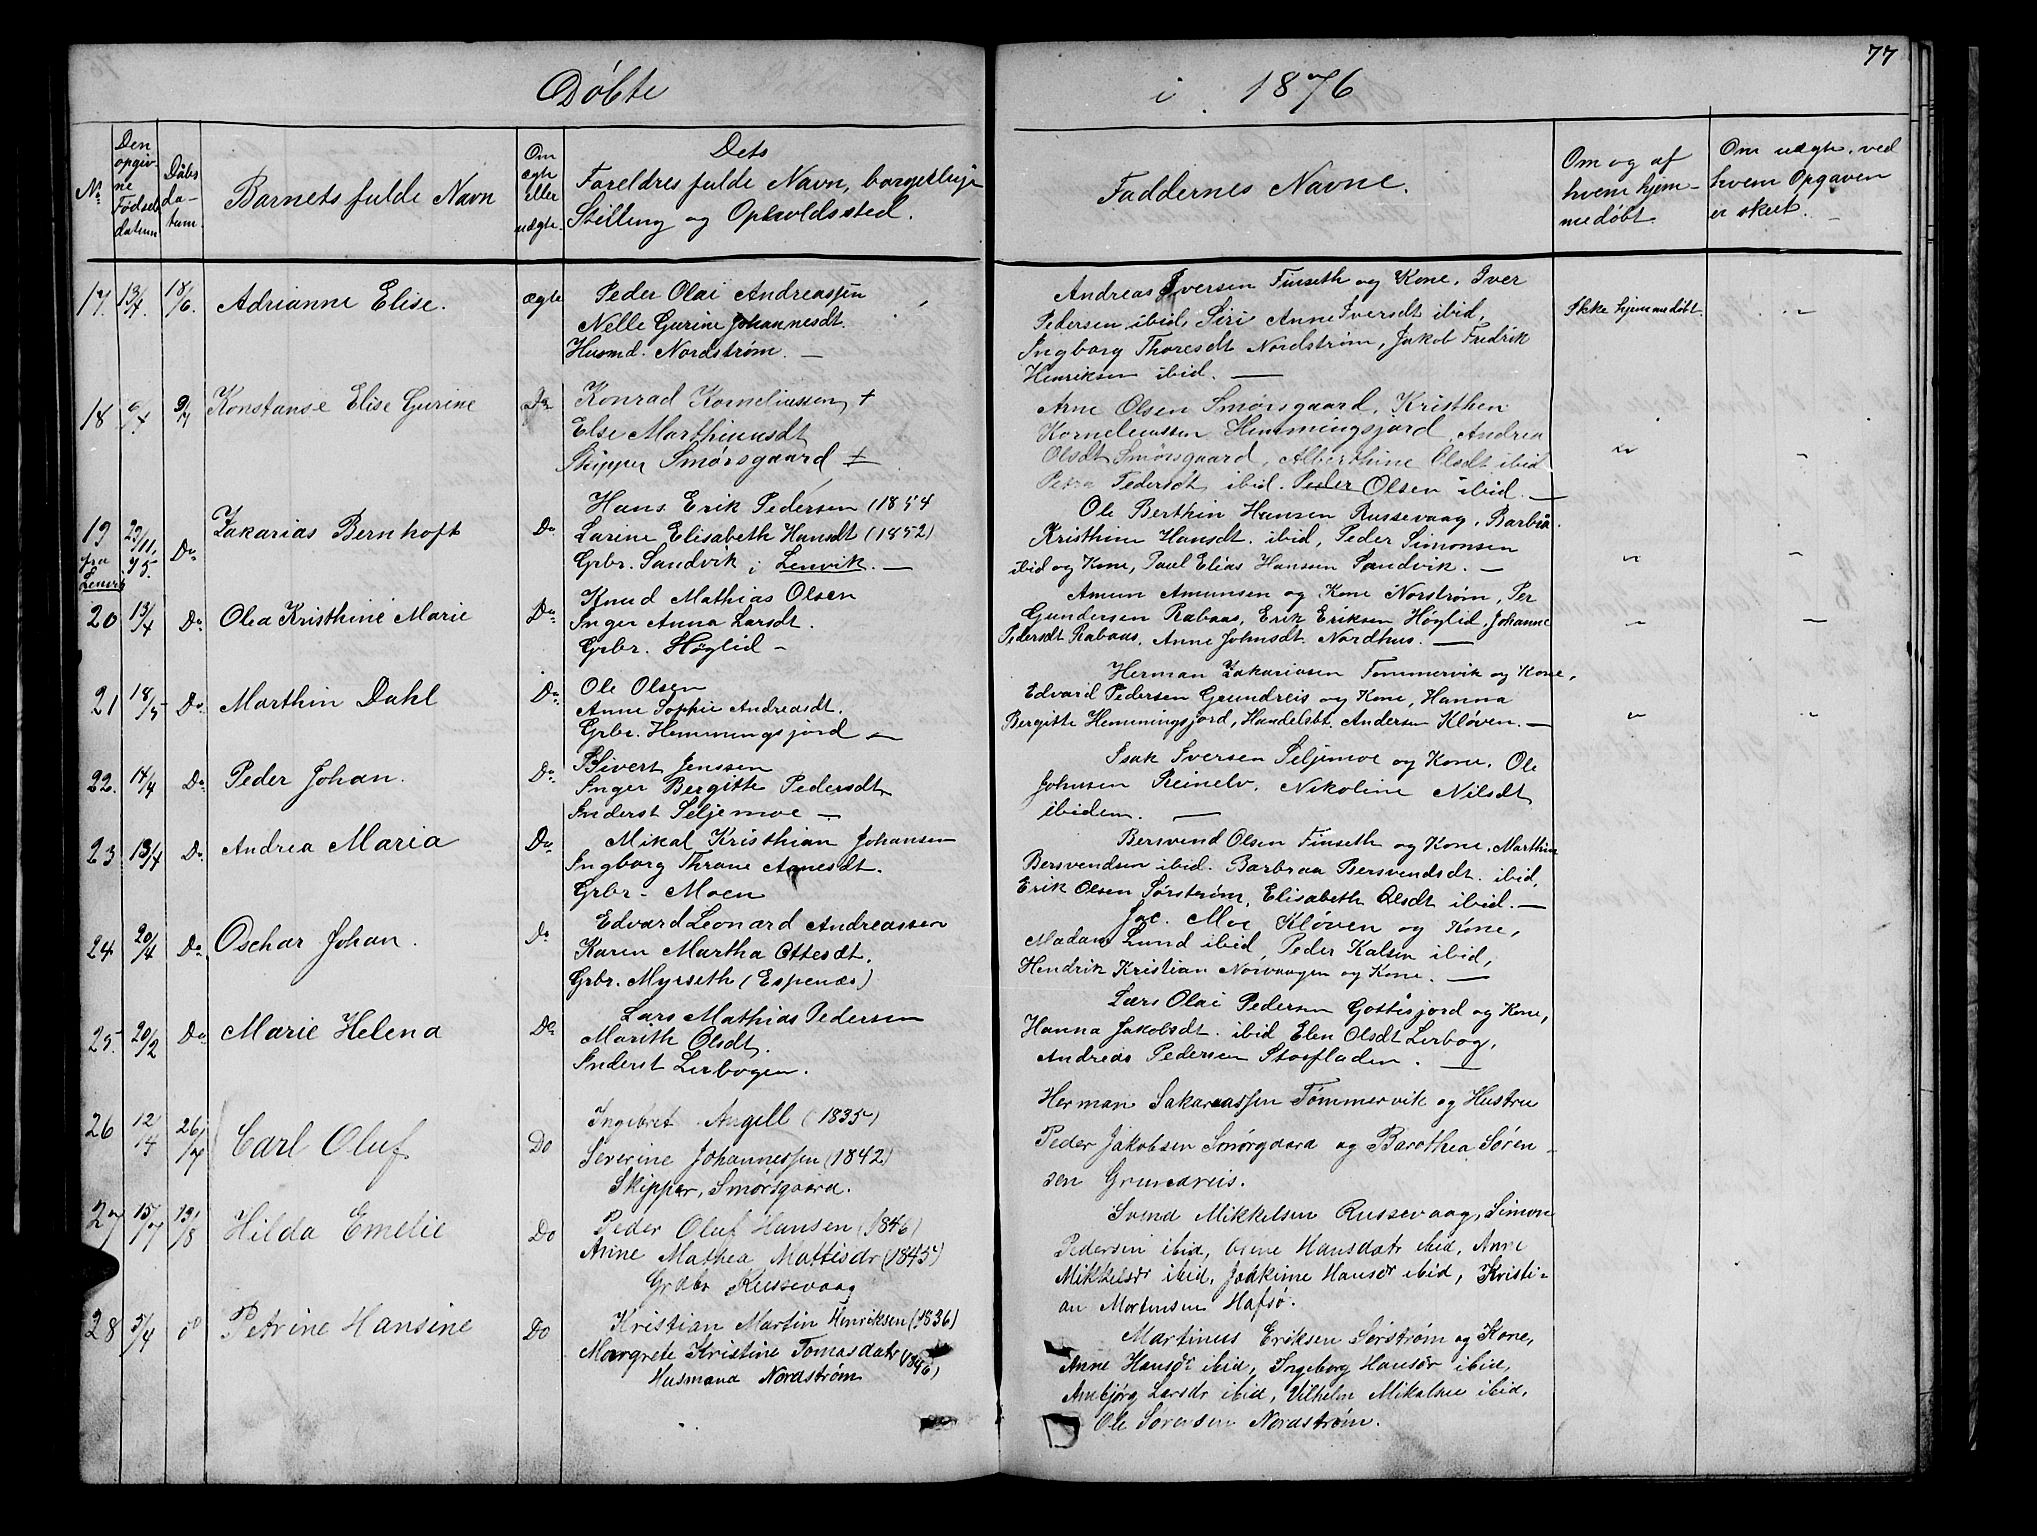 77
Døbte
i 1876
No
Den opgivne Fødselsdatum
Dåbsdatum.
Barnets fulde Navn
Om ægte eller uægte.
Dets
Foreldres fulde Navn, borgerlige
Stilling og Opholdssted.
Faddernes Navne.
Om og af
hvem hjem-
medøbt
Om uægte, ved
hvem Opgaven
er skeet.
17. 13/4. 18/6. Adrianne Elise. ægte
Peder Olai Andreassen
Nelle Gurine Johannesdt.
Husmd. Nordstrøm. —
Andreas Iversen Finseth og Kone, Iver
Pedersen ibid, Siri Anne Iversdt ibid,
Ingborg Thoresdt Nordstrøm, Jakob Fredrik
Henriksen ibid. —
Ikke hjemmedøbt. "
18 6/4. 9/7 Konstanse Elise Gurine Do
Konrad Korneliussen +
Else Marthinusdt
Skipper Smørsgaard +
Arne Olsen Smørsgaard, Kristhen
Korneliussen Hemmingsjord, Andrea
Olsdt Smørsgaard, Alberthine Olsdt ibid
Petra Pedersdt ibid. Peder Olsen ibid. —
" "
19 fra Lenvig 29/11 75. Do Zakarias Bernhoft Do
Hans Erik Pedersen (1854
Larine Elisabeth Hansdt (1852)
Grbr. Sandvik i Lenvik. —
Ole Berthin Hansen Russevaag, Barbra
Kristhine Hansdt. ibid, Peder Simonsen
ibid og Kone, Paul Elias Hansen Sandvik. —
" "
20 13/4 Do Olea Kristhine Marie Do
Knud Mathias Olsen
Inger Anna Larsdt.
Grbr. Høglid —
Amun Amunsen og Kone Norstrøm, Per
Gundersen Rabaas, Erik Eriksen Høglid, Johanne
Pedersdt Rabaas, Anne Johnsdt Nordhus. —
" "
21 18/5 Do Marthin Dahl Do
Ole Olsen
Anne Sophie Andreasdt.
Grbr. Hemmingsjord —
Herman Zakariasen Tommervik og Kone,
Edvard Pedersen Grundreis og Kone, Hanna
Bergitte Hemmingsjord, Handelsbt. Andersen Kløven. —
" "
22. 14/4 Do Peder Johan. Do
Sivert Jenssen
Inger Bergitte Pedersdt
Inderst Seljemoe —
Isak Iversen Seljemoe og Kone, Ole
Johnsen Reinelv, Nikoline Nilsdt
ibidem. —
23 13/4 Do Andrea Maria Do
Mikal Kristhian Johansen
Ingborg Throne Agnesdt.
Grbr. Moen
Bersvend Olsen Finseth og Kone, Marthin
Bersvendsen ibid. Barbraa Bersvendsdt. ibid,
Erik Olsen Sørstrøm, Elisabeth Olsdt ibid. —
24 20/4 Do Oschar Johan. Do
Edvard Leonard Andreassen
Karen Martha Ottesdt.
Grbr. Myrseth (Espenæs)
Jac. Moe Kløven og Kone,
Madam Lund ibid, Peder Kalsen ibid,
Hendrik Kristian Norvaagen og Kone. —
25. 20/2 Do Marie Helena Do
Lars Mathias Pedersen
Marith Olsdt.
Inderst Lerbogen.
Lars Olai Pedersen Gottesjord og Kone,
Hanna Jakobsdt. ibid Elen Olsdt Lerbog,
Andreas Pedersen Storfladen. —
26 12/4 26/7 Carl Oluf Do
Ingebret Angell (1835)
Severine Johannessen (1842)
Skipper, Smørsgaard.
Herman Sakareassen Tømmervik og Hustru
Peder Jakobsen Smørgaard og Barothea Søren-
sen Grundreis.
27 15/7 13/8 Hilda Emelie Do
Peder Oluf Hansen (1846)
Anne Mathea Mattisdr (1845)
Grdbr Russevaag
Svend Mikkelsen Russevaag, Simon
Pedersen ibid, Hansdatr ibid, Anne
Mikkelsdr ibid, Joakime Hansdr ibid, Kristi-
an Mortensen Hafsø.
28 5/4 do Petrine Hansine Do
Kristian Martin Henriksen (1836)
Margrete Kristine Tomasdatr (1846)
Husmand Nordstrøm
Martinus Eriksen Sørstrøm og Kone,
Anne Hansdr ibid, Ingeborg Hansdr ibid,
Anbjørg Larsdr ibid, Vilhelm Mikalsen ibid,
Ole Sørensen Nordstrøm.